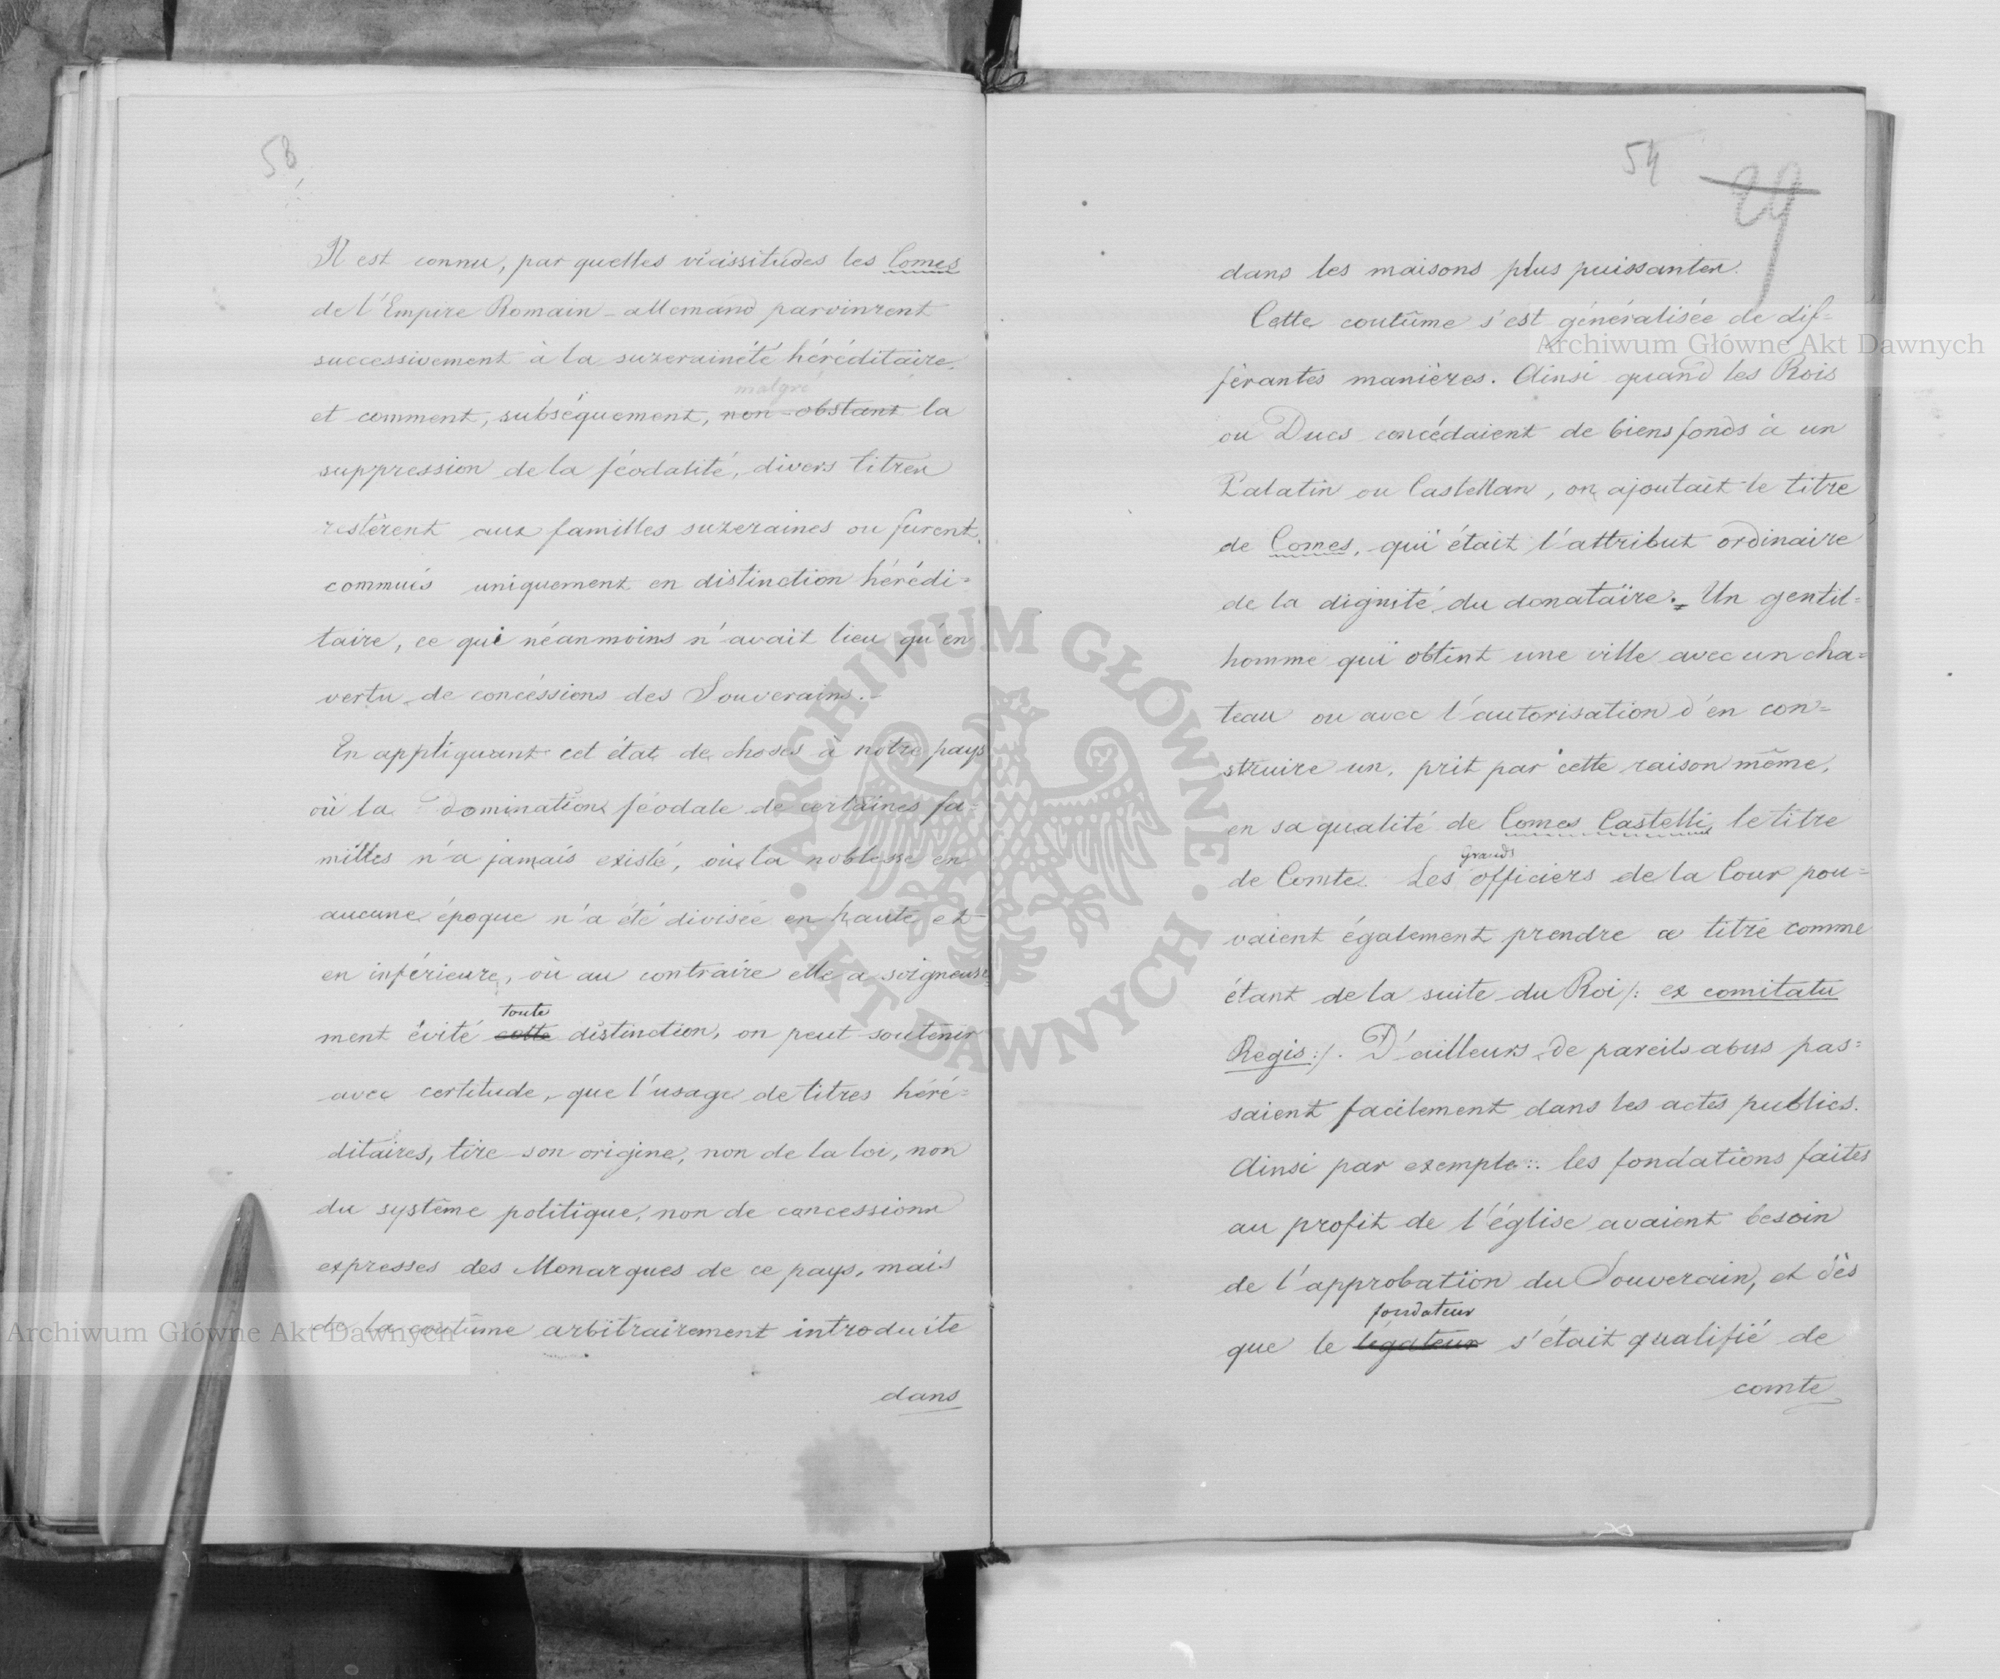 58
Il est connu, par quelles vicissitudes les Comes
de l'Empire Romain-allemand parvinrent
successivement à la suzeraineté héréditaire,
malgré
et comment, subséquement, non-obstant la
suppression de la féodalité, divers titres
restèrent aux familles suzeraines ou furent
commués uniquement en distinction hérédi=
taire, ce qui néanmoins n'avait lieu qu'en
vertu de concéssions des Souverains.-
En appliquant cet état de choses à notre pays
où la domination féodale de certaines fa=
milles n'a jamais existé, où la noblesse en
aucune époque n'a été divisée en haute et
en inférieure, où au contraire elle a soigneuse
toute
ment évité cette distinction, on peut soutenir
avec certitude, que l'usage de titres héré=
ditaires, tire son origine, non de la loi, non
du système politique, non de concessions
expresses des Monarques de ce pays, mais
de la coutûme arbitrairement introduite
dans
54 29
dans les maisons plus puissantes.
Cette coutûme s'est généralisée de dif=
férantes manières. Ainsi quand les Rois
ou Ducs concédaient de biens fonds à un
Palatin ou Castellan, on ajoutait le titre
de Comes, qui était l'attribut ordinaire
de la dignité du donataire. Un gentil=
homme qui obtint une ville avec un cha=
teau ou avec l'autorisation d'en con=
struire un, prit par cette raison même,
en sa qualité de Comes Castelli, le titre
Grands
de Comte. Les officiers de la Cour pou=
vaient également prendre ce titre comme
étant de la suite du Roi /: ex comitatu
Regis :/. D'ailleurs de pareils abus pas=
saient facilement dans les actes publics.
Ainsi par exemple: les fondations faites
au profit de l'église avaient besoin
de l'approbation du Souverain, et dès
fondateur
que le légateur s'était qualifié de
comte
Archiwum Główne Akt Dawnych
Archiwum Główne Akt Dawnych
ARCHIWUM GŁÓWNE · AKT DAWNYCH ·